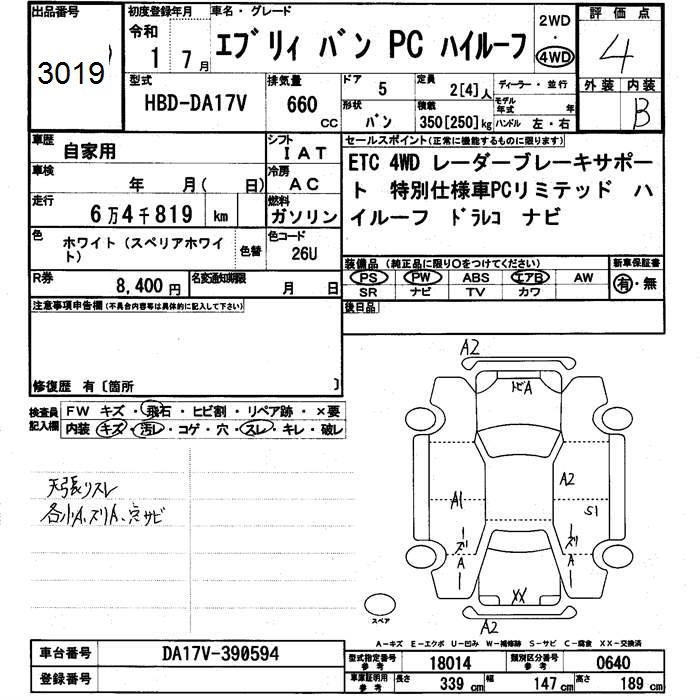 出品番号 初度登録年月 車名・グレード 2WD ・ 4WD 評価点
3019 令和 1 7月 エブリィ バン PC ハイルーフ 4
型式 排気量 ドア 5 定員 2[4]人 ディーラー・並行 外装 内装
HBD-DA17V 660 CC 形状 バン 積載 350[250]kg モデル年式 年 ハンドル 左・右 B
車歴 自家用 シフト IAT セールスポイント(正常に機能するものに限ります)
車検 年 月( 日) 冷房 AC ETC 4WD レーダーブレーキサポー
走行 6万4千819 km 燃料 ガソリン ト 特別仕様車PCリミテッド ハ
イルーフ ドラレコ ナビ
色 ホワイト(スペリアホワイ
ト) 色替 色コード 26U
装備品(純正品に限り○をつけてください) 新車保証書
R券 8,400円 名変通知期限 月 日 PS PW ABS エアB AW 有・無
SR ナビ TV カワ
注意事項申告欄(不具合内容等は具体的に記入して下さい) 後日品
修復歴 有〔箇所 〕
検査員 記入欄 FW キズ・飛石・ヒビ割・リペア跡・×要
内装 キズ・汚レ・コゲ・穴・スレ・キレ・破レ
天張リスレ
各小A、ズリA、穴サビ
A2
トビA
A2
A1
S1
ズリ
ズリ
A
A
XX
A2
スペア
A-キズ E-エクボ U-凹み W-補修跡 S-サビ C-腐食 XX-交換済
車台番号 DA17V-390594 型式指定番号 参考 18014 類別区分番号 参考 0640
登録番号 車庫証明用 参考 長さ 339 cm 幅 147 cm 高さ 189 cm